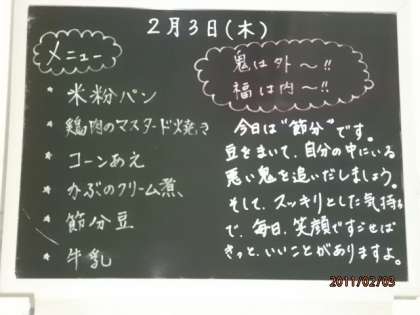 2月3日(木)
メニュー
* 米粉パン
* 鶏肉のマスタード焼き
* コーンあえ
* かぶのクリーム煮
* 節分豆
* 牛乳
鬼は外〜!!
福は内〜!!
今日は"節分"です。
豆をまいて、自分の中にいる
悪い鬼を追いだしましょう。
そして、スッキリとした気持ち
で、毎日、笑顔ですごせば
きっと、いいことがありますよ。
2011/02/03